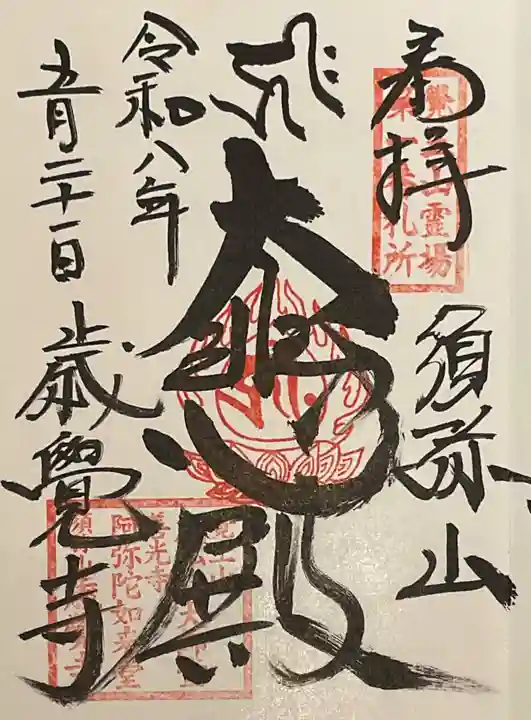 奉拝
須弥山
大悲殿
令和八年
五月二十一日
歳覺寺
霊場
札所
善光寺
阿弥陀如来堂